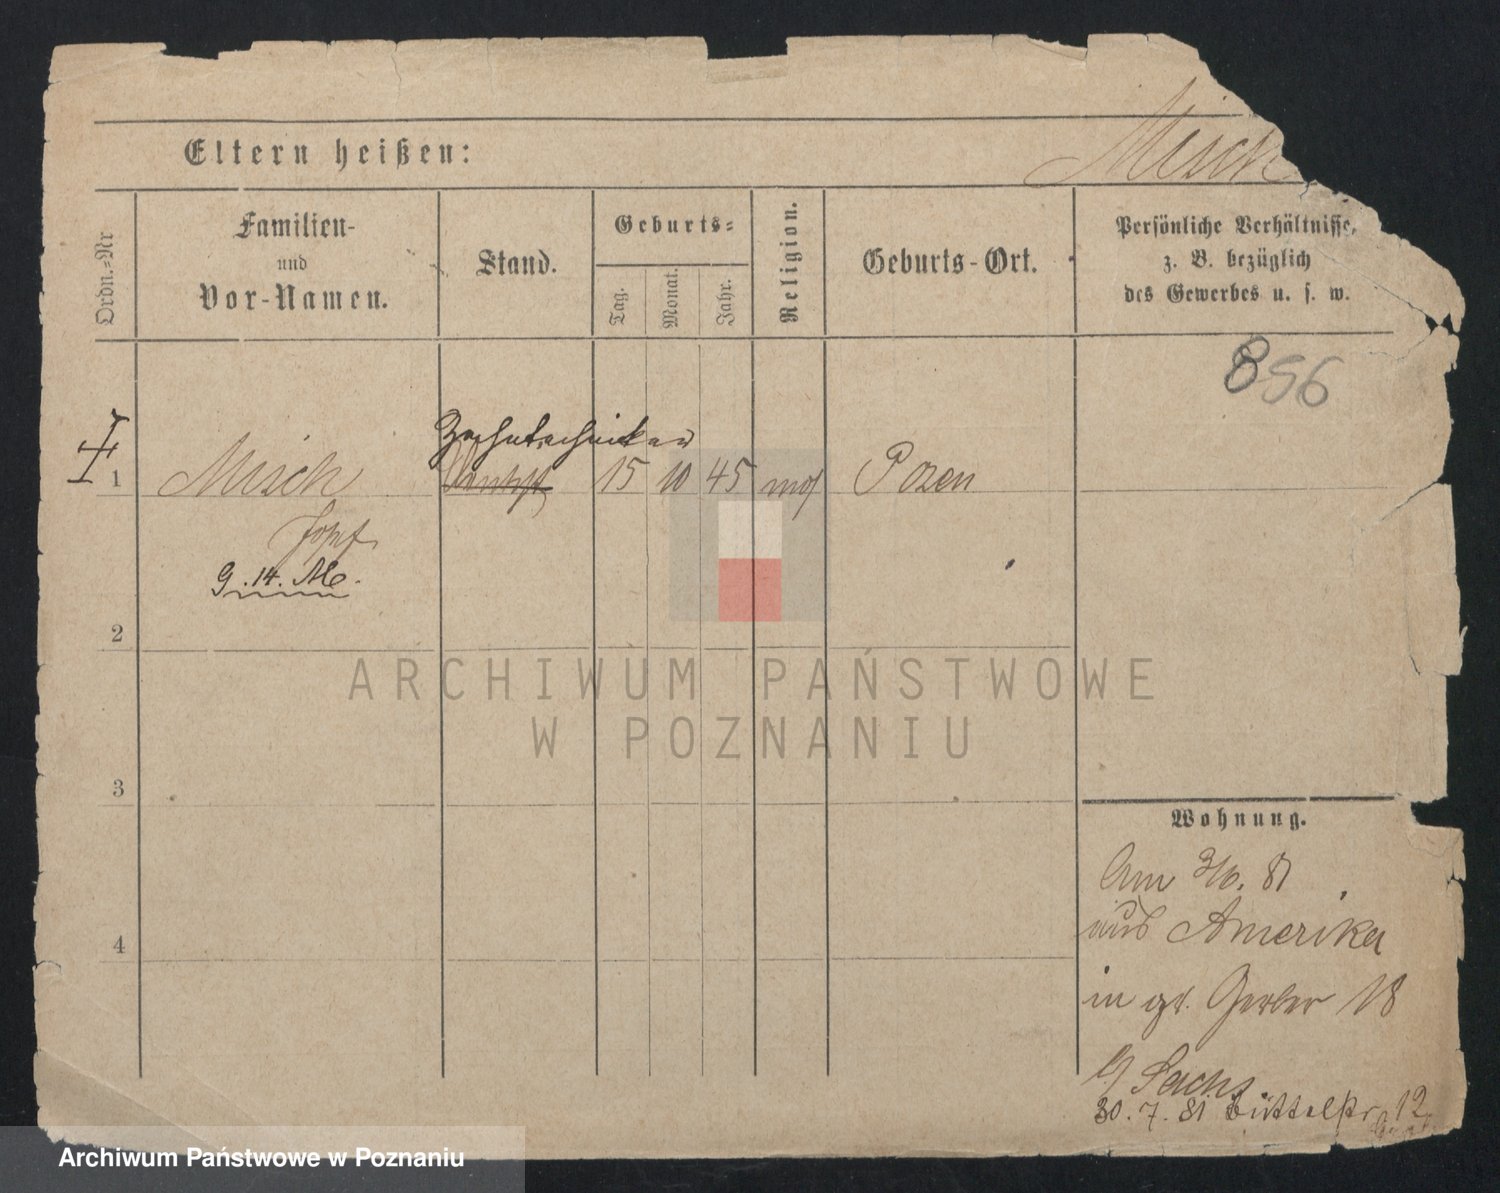 Misch
Eltern heißen:
Ordn.-Nr
Familien-
und
Vor-Namen.
Stand.
Geburts-
Tag.
Monat.
Jahr.
Religion.
Geburts-Ort.
Persönliche Verhältnisse,
z. B. bezüglich
des Gewerbes u. s. w.
856
Zahntechniker
1 Misch 15 10 45 mos Posen
g. 14. Mo.
2
3
4
Wohnung.
Am 3/6. 81
aus Amerika
in gr. Gerber 18
b/ Sachs
30. 7. 81 Büttelstr 12
ARCHIWUM PAŃSTWOWE
W POZNANIU
Archiwum Państwowe w Poznaniu